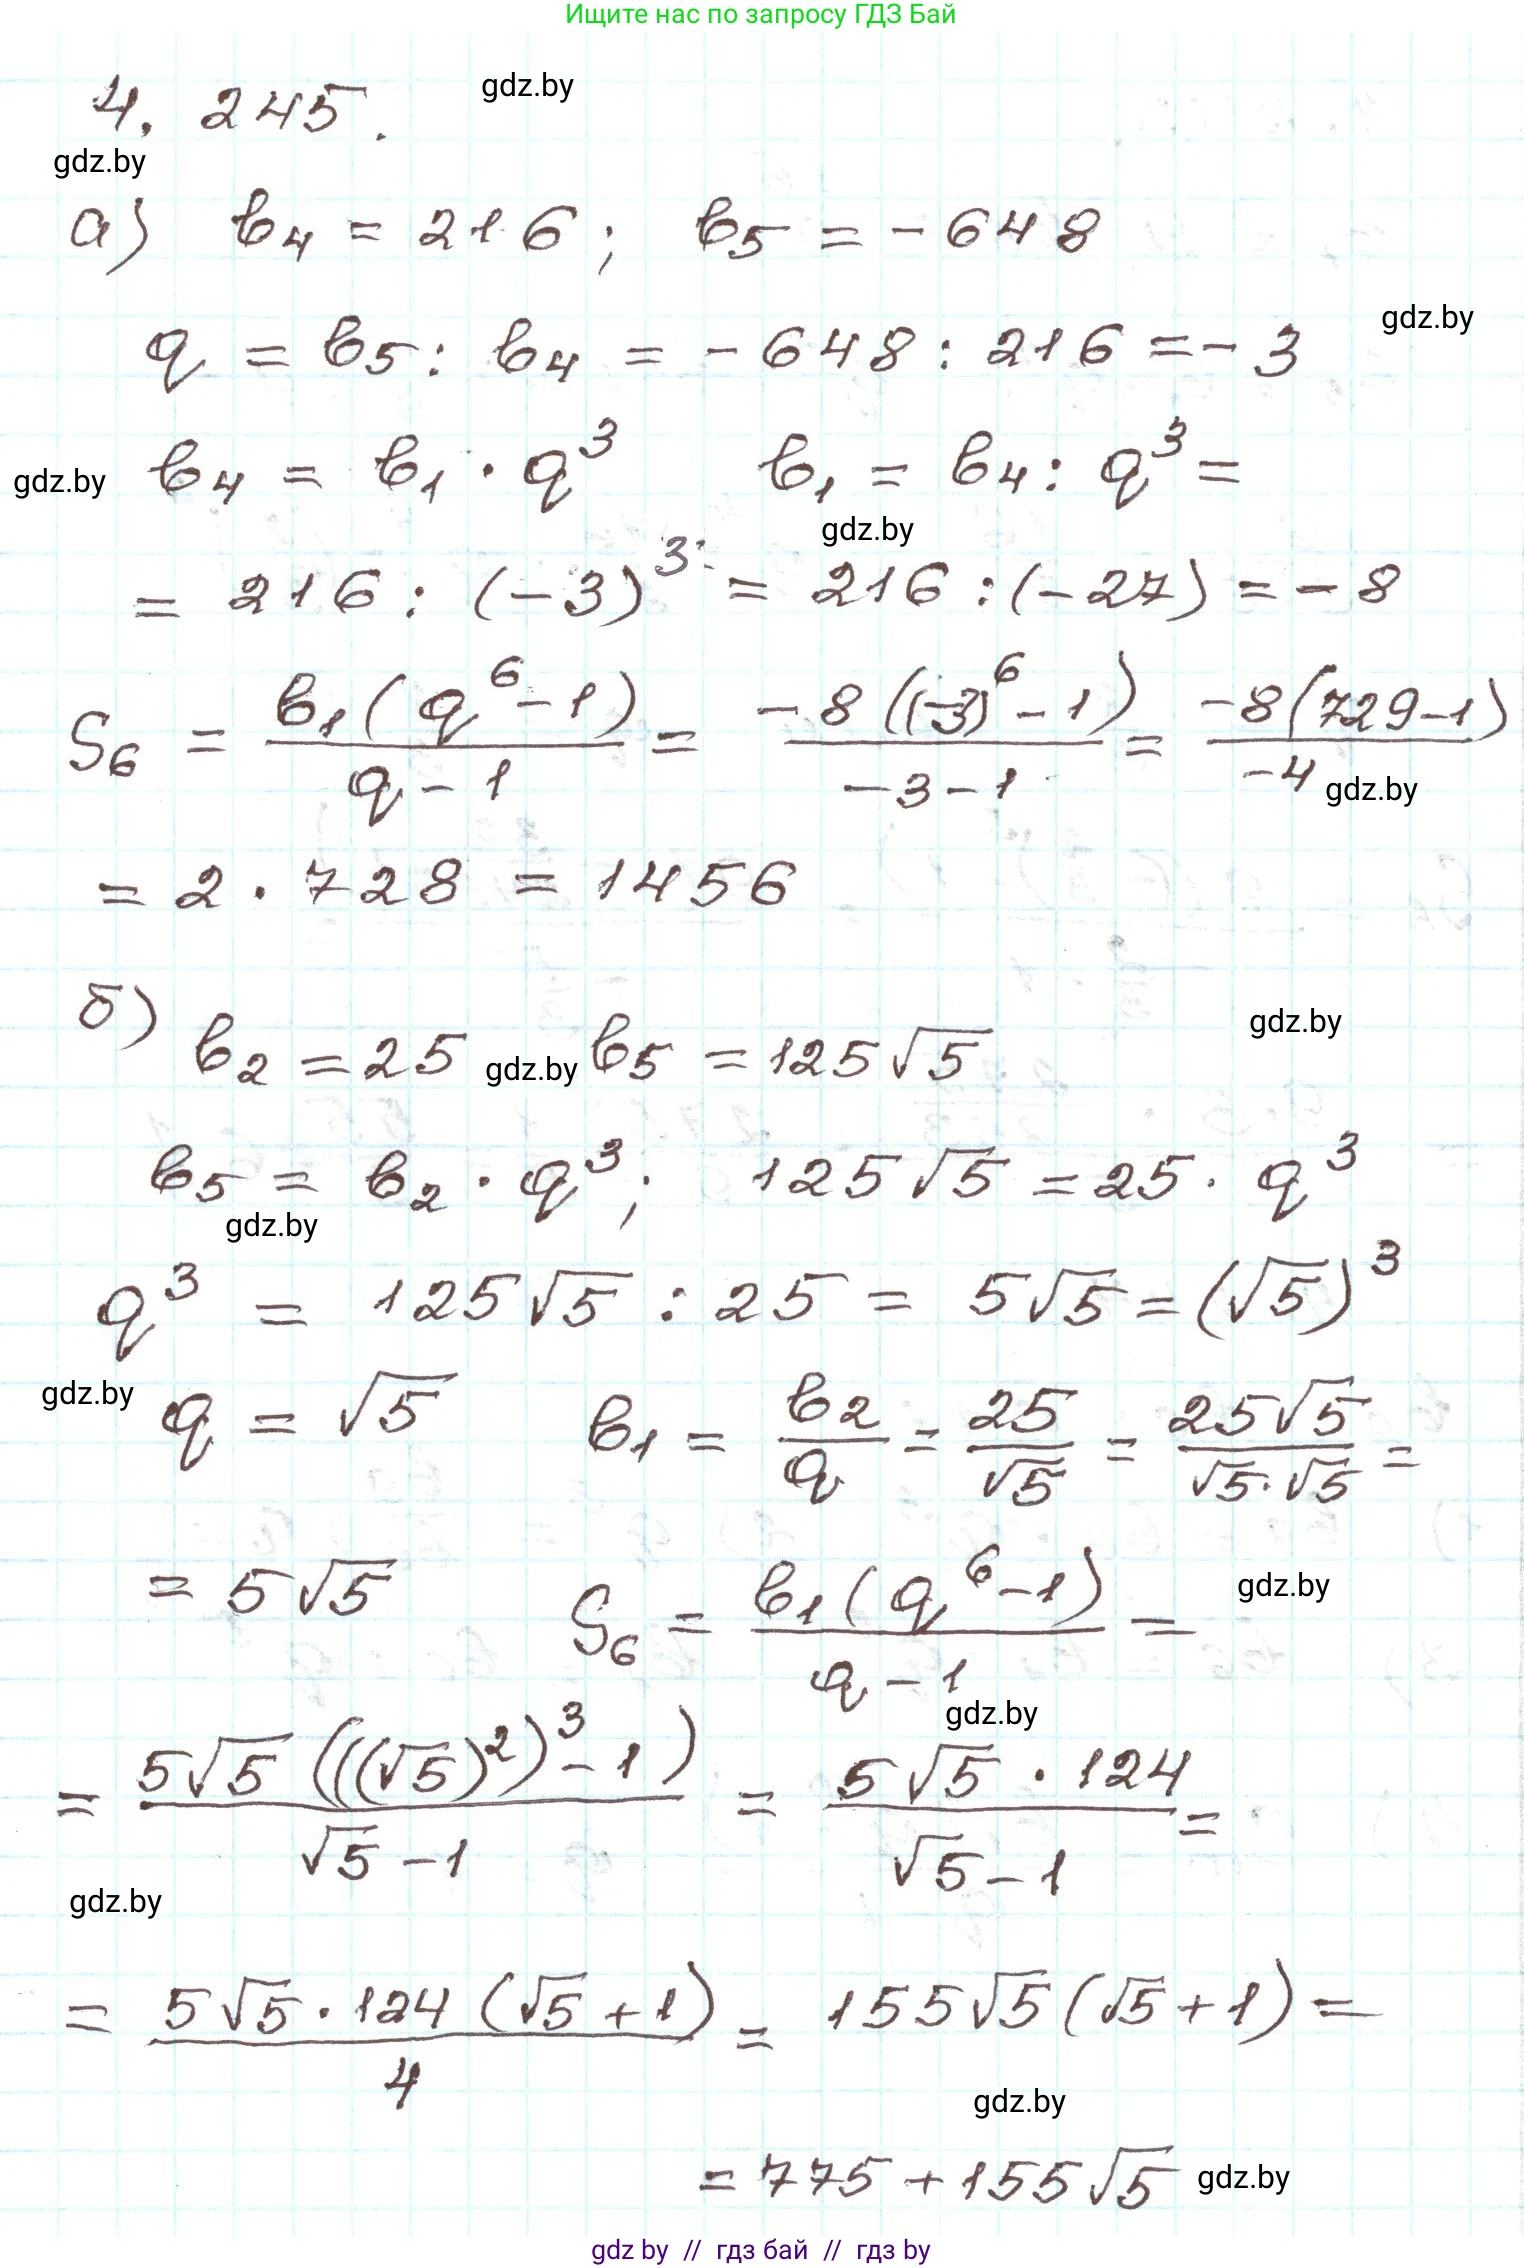 Ищите нас по запросу ГДЗ Бай
4. 245. gdz.by
gdz.by
а) b₄ = 216; b₅ = -648
gdz.by
q = b₅ : b₄ = -648 : 216 = -3
gdz.by b₄ = b₁ · q³ b₁ = b₄ : q³ =
gdz.by
= 216 : (-3)³ = 216 : (-27) = -8
S₆ = b₁(q⁶-1)/(q-1) = -8((-3)⁶-1)/(-3-1) = -8(729-1)/(-4)
gdz.by
= 2 · 728 = 1456
б) b₂ = 25 gdz.by b₅ = 125√5 gdz.by
b₅ = b₂ · q³; 125√5 = 25 · q³
gdz.by
q³ = 125√5 : 25 = 5√5 = (√5)³
gdz.by q = √5 b₁ = b₂/q = 25/√5 = 25√5/(√5·√5) =
= 5√5 S₆ = b₁(q⁶-1)/(q-1) = gdz.by
gdz.by
= 5√5(((√5)²)³-1)/(√5-1) = 5√5 · 124/(√5-1) =
gdz.by
= 5√5 · 124(√5+1)/4 = 155√5(√5+1) =
gdz.by
= 775 + 155√5 gdz.by
gdz by // гдз бай // гдз by